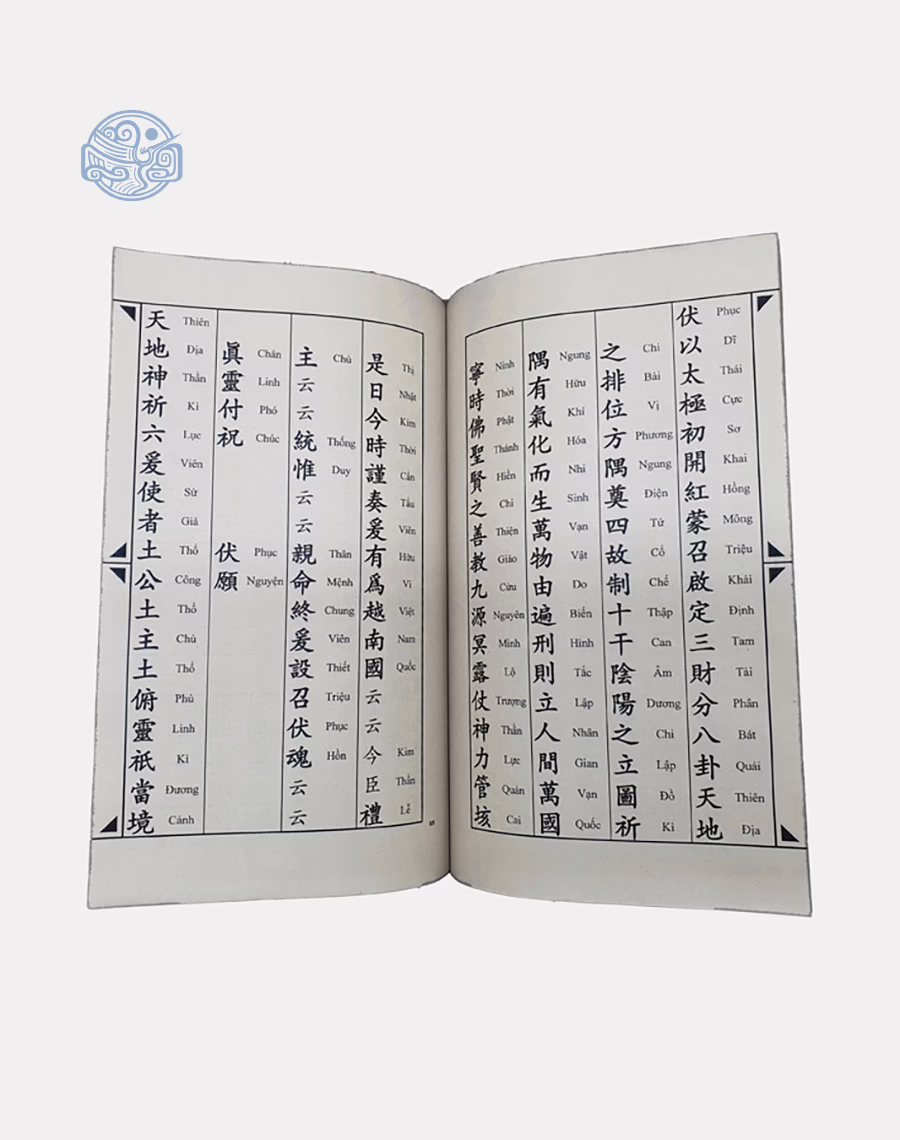 伏以太極初開紅蒙召啟定三財分八卦天地
Phục Dĩ Thái Cực Sơ Khai Hồng Mông Triệu Khải Định Tam Tài Phân Bát Quái Thiên Địa
之排位方隅奠四故制十干陰陽之立圖祈
Chi Bài Vị Phương Ngung Điện Tứ Cố Chế Thập Can Âm Dương Chi Lập Đồ Kì
隅有氣化而生萬物由遍刑則立人間萬國
Ngung Hữu Khí Hóa Nhi Sinh Vạn Vật Do Biến Hình Tắc Lập Nhân Gian Vạn Quốc
寧時佛聖賢之善教九源冥露仗神力管垓
Ninh Thời Phật Thánh Hiền Chi Thiện Giáo Cửu Nguyên Minh Lộ Trượng Thần Lực Quản Cai
是日今時謹奏爰有爲越南國云云今臣禮
Thị Nhật Kim Thời Cẩn Tấu Viên Hữu Vi Việt Nam Quốc Kim Thần Lễ
主云云統惟云云親命終爰設召伏魂云云
Chủ Thống Duy Thân Mệnh Chung Viên Thiết Triệu Phục Hồn
眞靈付祝 伏願
Chân Linh Phó Chúc Phục Nguyện
天地神祈六爰使者土公土主土俯靈祇當境
Thiên Địa Thần Kì Lục Viên Sứ Giả Thổ Công Thổ Chủ Thổ Phủ Linh Kì Đương Cảnh